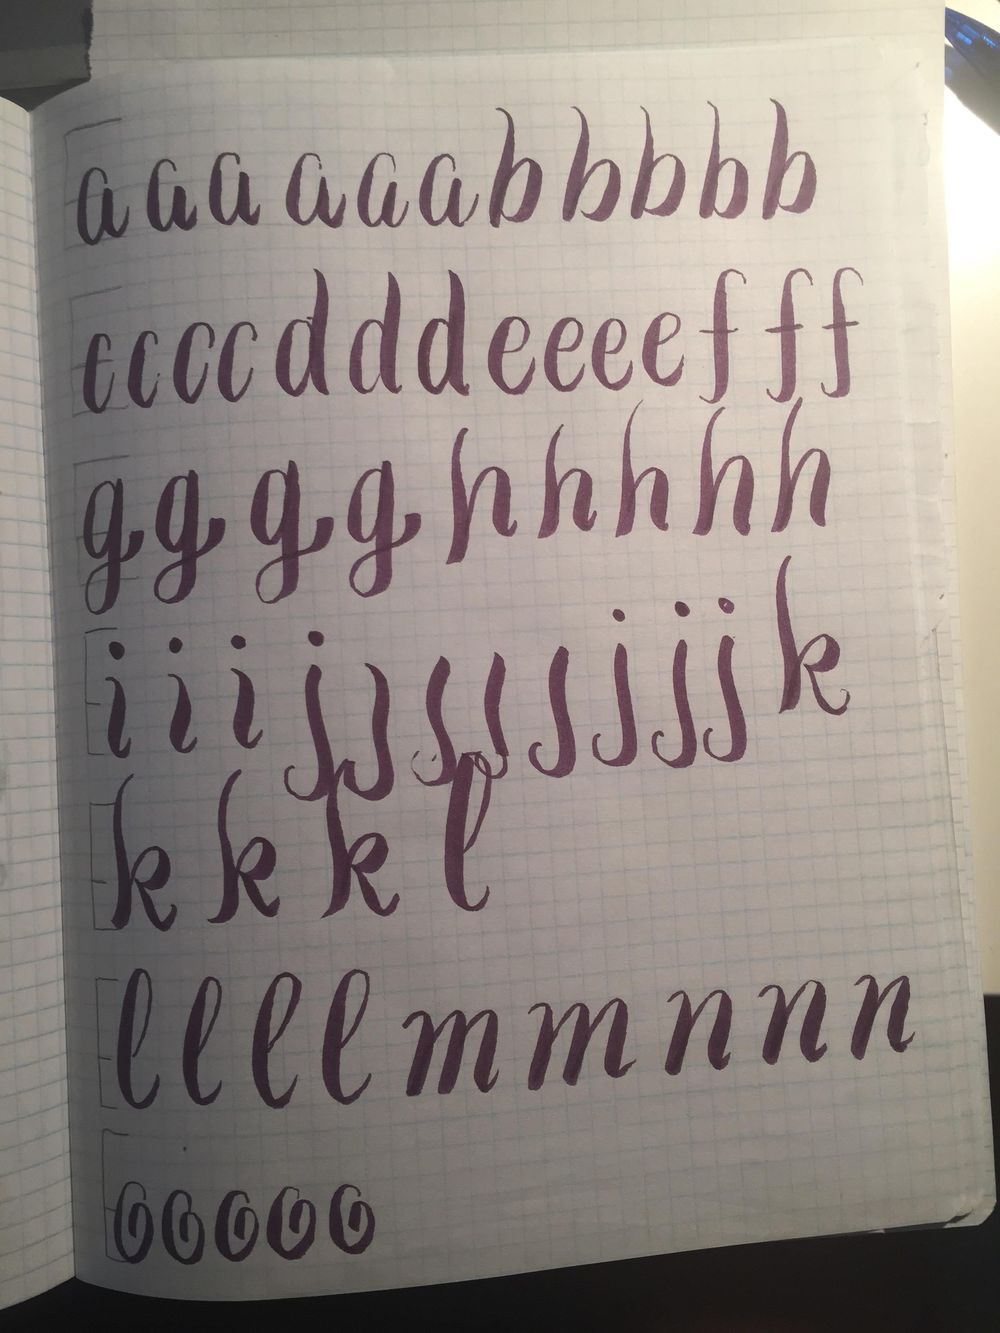 a a a a a a b b b b b
c c c c d d d e e e e f f f
g g g g h h h h h
i i i j j j j j j j j k
k k k l
l l l l m m n n n
o o o o o